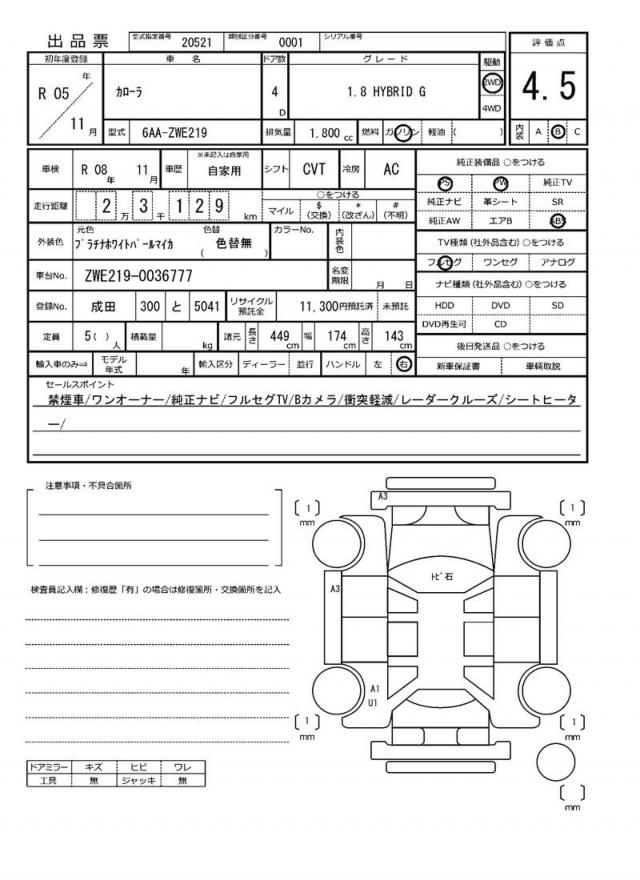 出品票 型式指定番号 20521 類別区分番号 0001 シリアル番号
評価点
4.5
内装 A B C
初年度登録 車名 ドア数 グレード 駆動
R 05 年 11 月 カローラ 4 D 1.8 HYBRID G 2WD 4WD
型式 6AA-ZWE219 排気量 1.800 cc 燃料 ガソリン 軽油 ( )
車検 R 08 年 11 月 車歴 ※未記入は自家用 自家用 シフト CVT 冷房 AC
走行距離 2 万 3 千 1 2 9 km
○をつける
マイル $ (交換) * (改ざん) # (不明)
外装色 元色 プラチナホワイトパールマイカ 色替 ( 色替無 ) カラーNo. 内装色
車台No. ZWE219-0036777 名変期限 月 日
登録No. 成田 300 と 5041 リサイクル預託金 11,300円預託済 未預託
定員 5( ) 人 積載量 kg 諸元 長さ 449 cm 幅 174 cm 高さ 143 cm
輸入車のみ⇒ モデル年式 年 輸入区分 ディーラー 並行 ハンドル 左 右
純正装備品 ○をつける
PS PW 純正TV
純正ナビ 革シート SR
純正AW エアB ABS
TV種類(社外品含む)○をつける
フルセグ ワンセグ アナログ
ナビ種類(社外品含む)○をつける
HDD DVD SD
DVD再生可 CD
後日発送品 ○をつける
新車保証書 車輌取説
セールスポイント
禁煙車/ワンオーナー/純正ナビ/フルセグTV/Bカメラ/衝突軽減/レーダークルーズ/シートヒータ
ー/
注意事項・不具合箇所
検査員記入欄:修復歴「有」の場合は修復箇所・交換箇所を記入
A3
[ 1 ] mm
[ 1 ] mm
トビ石
A3
A1
U1
[ 1 ] mm
[ 1 ] mm
[ ] mm
ドアミラー キズ ヒビ ワレ
工具 無 ジャッキ 無